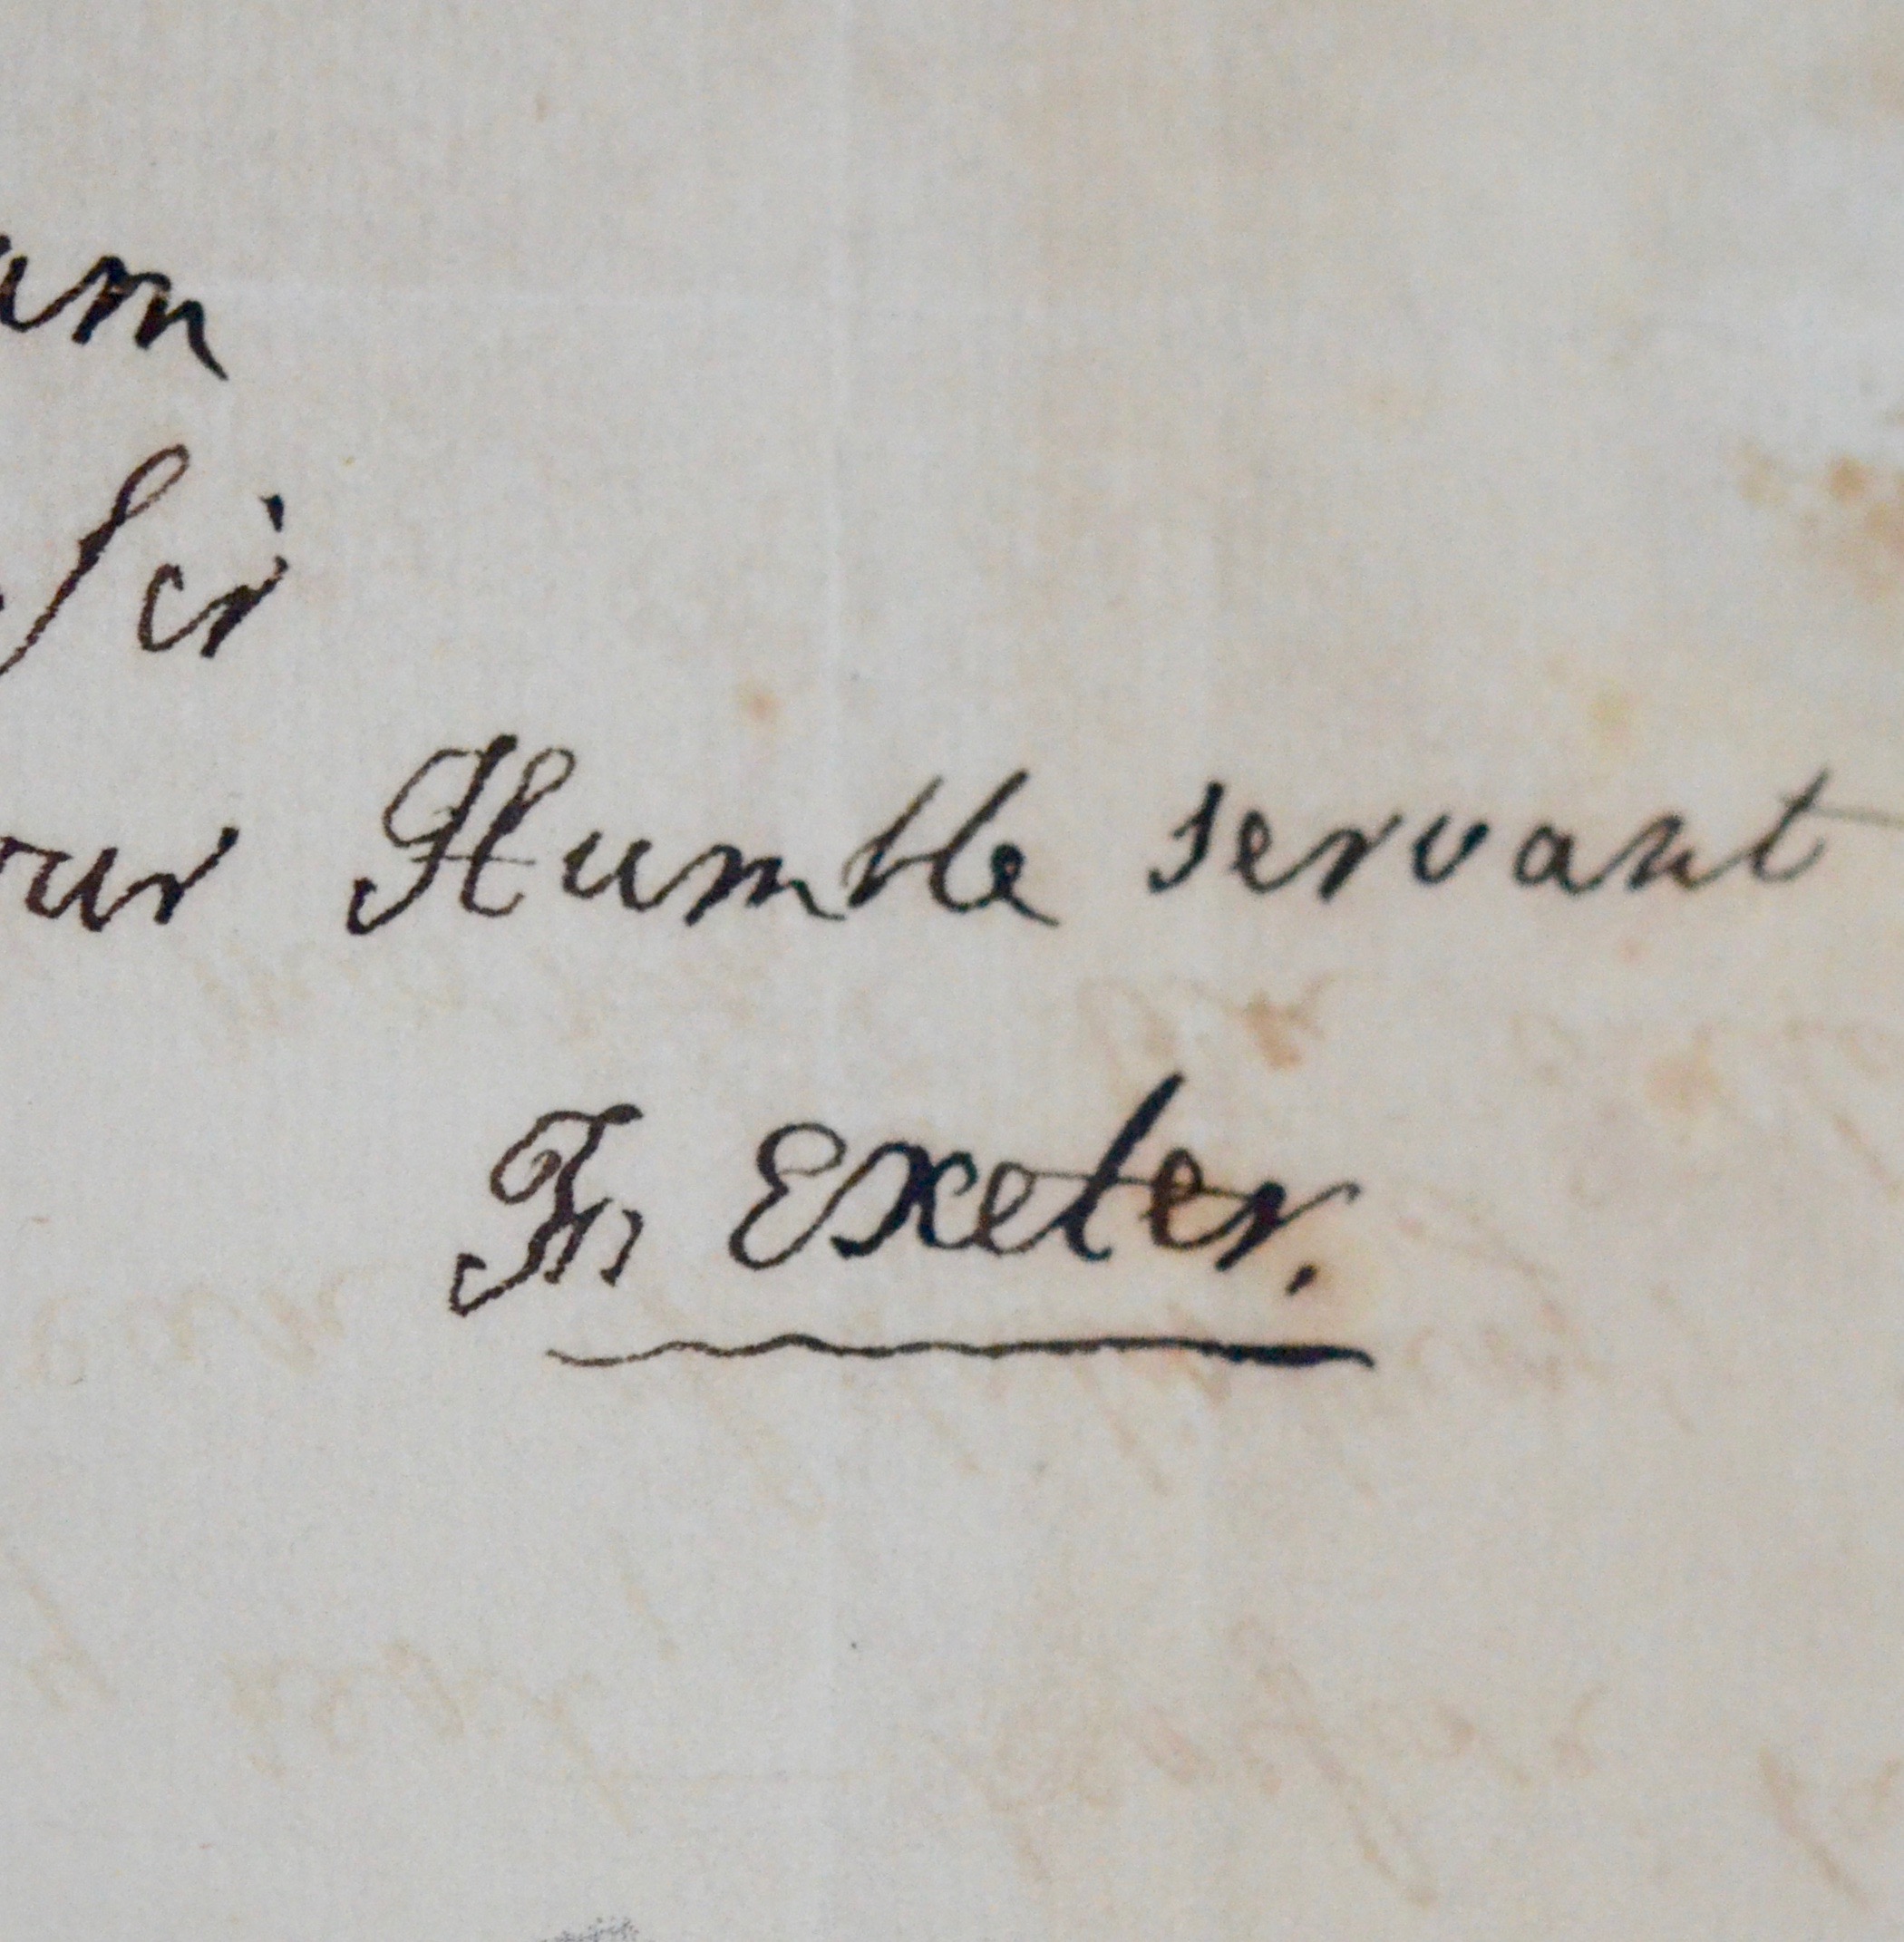 am
Sir
our Humble servant
Jn Exeter.